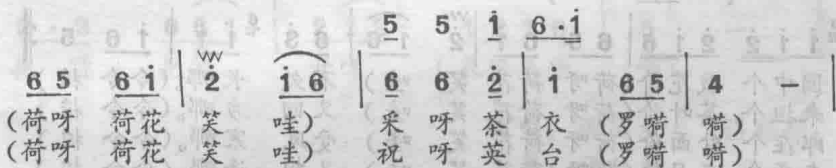 5 5 i 6·i
6 5 6 i | 2 i 6 | 6 6 2 | i 6 5 | 4 - |
(荷呀 荷花 笑 哇) 采 呀 茶 衣 (罗嗬 嗬)
(荷呀 荷花 笑 哇) 祝 呀 英 台 (罗嗬 嗬)